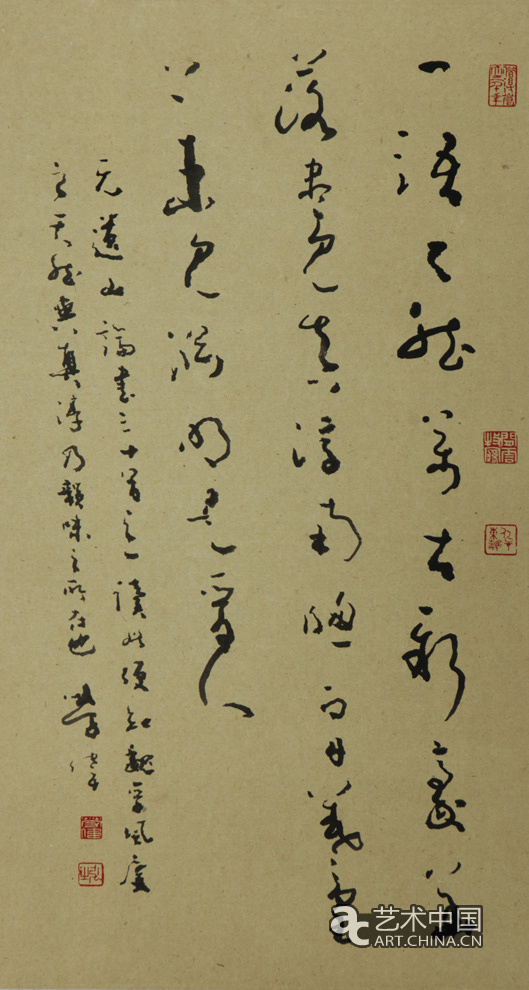 一語天然萬古新豪華
落盡見真淳南窗白日羲皇
上未害淵明是晉人
元遺山論書三十首之一讀此須知魏晉風度
之天然與真淳乃韻味之所在也
艺术中国
ART.CHINA.CN